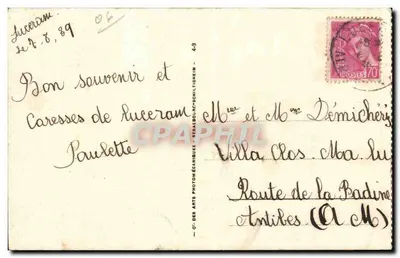 Luceram
le 7. 8. 39
06
Bon souvenir et
Caresses de Luceram
Paulette
4-3
Cie DES ARTS PHOTOMÉCANIQUES
Mr et Mme Démichély
Villa Clos Ma lu
Route de la Badine
Antibes (A M)
70
CPAPHIL